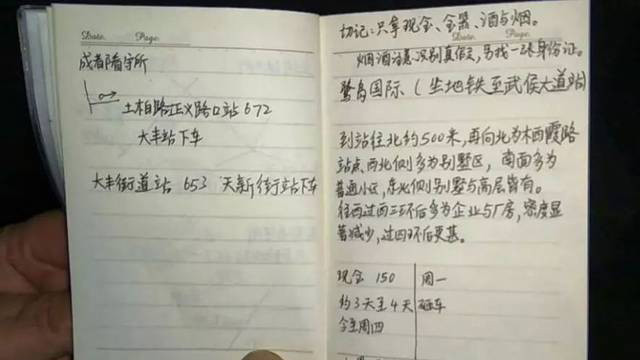 Date. Page.
成都看守所
土桥路正义路口站 672
大丰站下车
大丰街道站 653 天新街站下车
切记:只拿现金、金器、酒与烟。
Date. Page.
烟酒注意识别真假,另找一张身份证。
鹭岛国际、(坐地铁至武侯大道站)
到站往北约500米,再向北为木西霞路
站点,西北侧多为别墅区,南面多为
普通小区,东北侧别墅与高层皆有。
往西过西三环后多为企业与厂房,密度显
著减少,过四环后更甚。
现金 150 周一
约3天至4天 砸车
今至周四